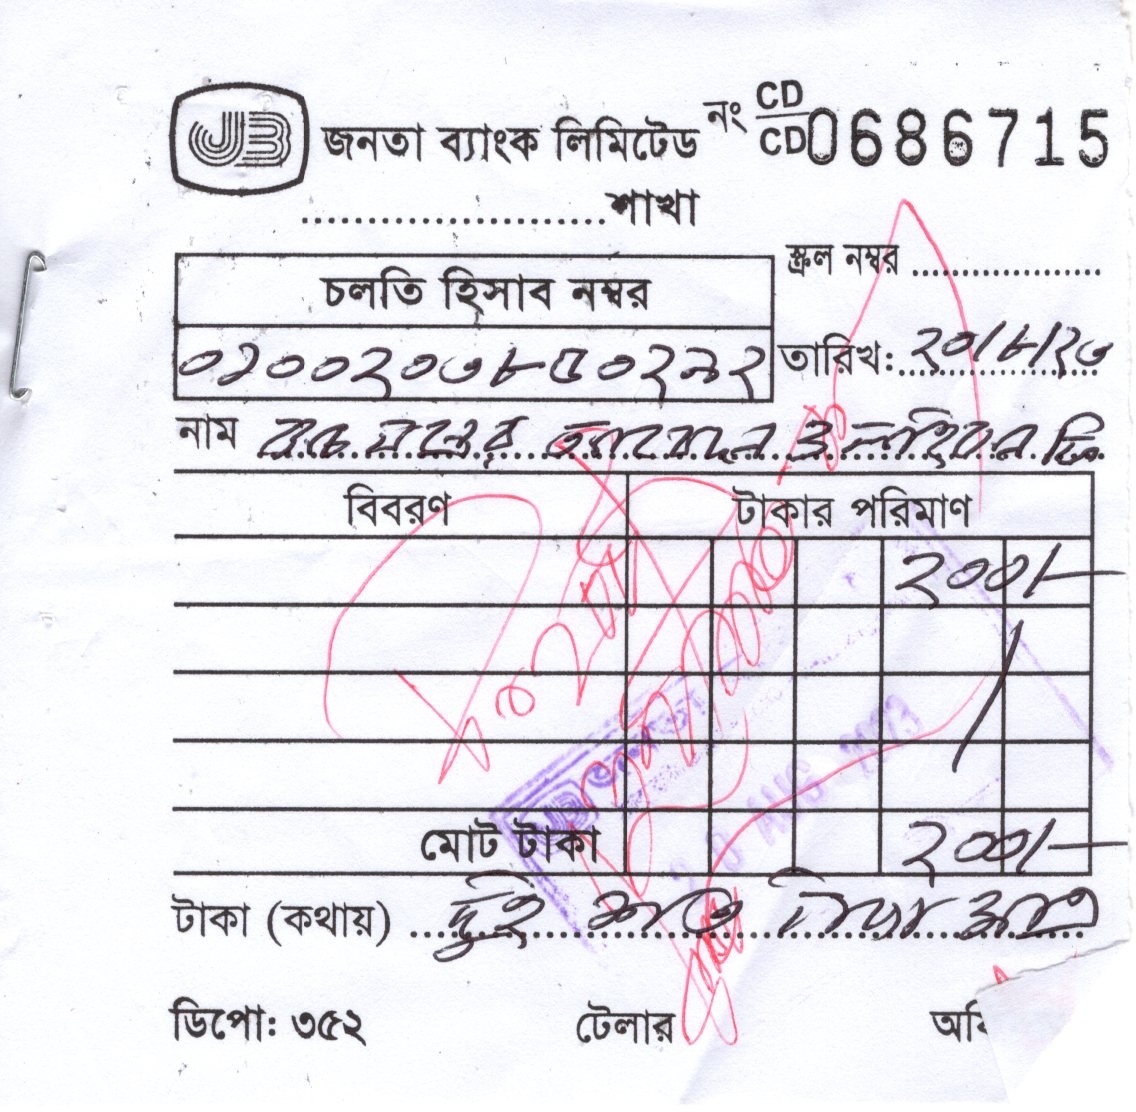 JB জনতা ব্যাংক লিমিটেড নং CD/CD 0686715
........................শাখা
স্ক্রল নম্বর ....................
চলতি হিসাব নম্বর
০১০০২০৩৮৫০২৯২
তারিখ: ২০/৮/২৩
নাম ও ফি
বিবরণ টাকার পরিমাণ
২০০/-
20 AUG 2023
মোট টাকা ২০০/-
টাকা (কথায়) দুই শত টাকা মাত্র
ডিপো: ৩৫২ টেলার